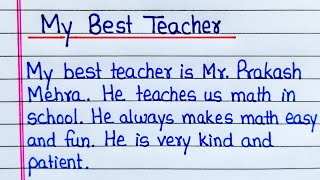 My Best Teacher
My best teacher is Mr. Prakash
Mehra. He teaches us math in
school. He always makes math easy
and fun. He is very kind and
patient.